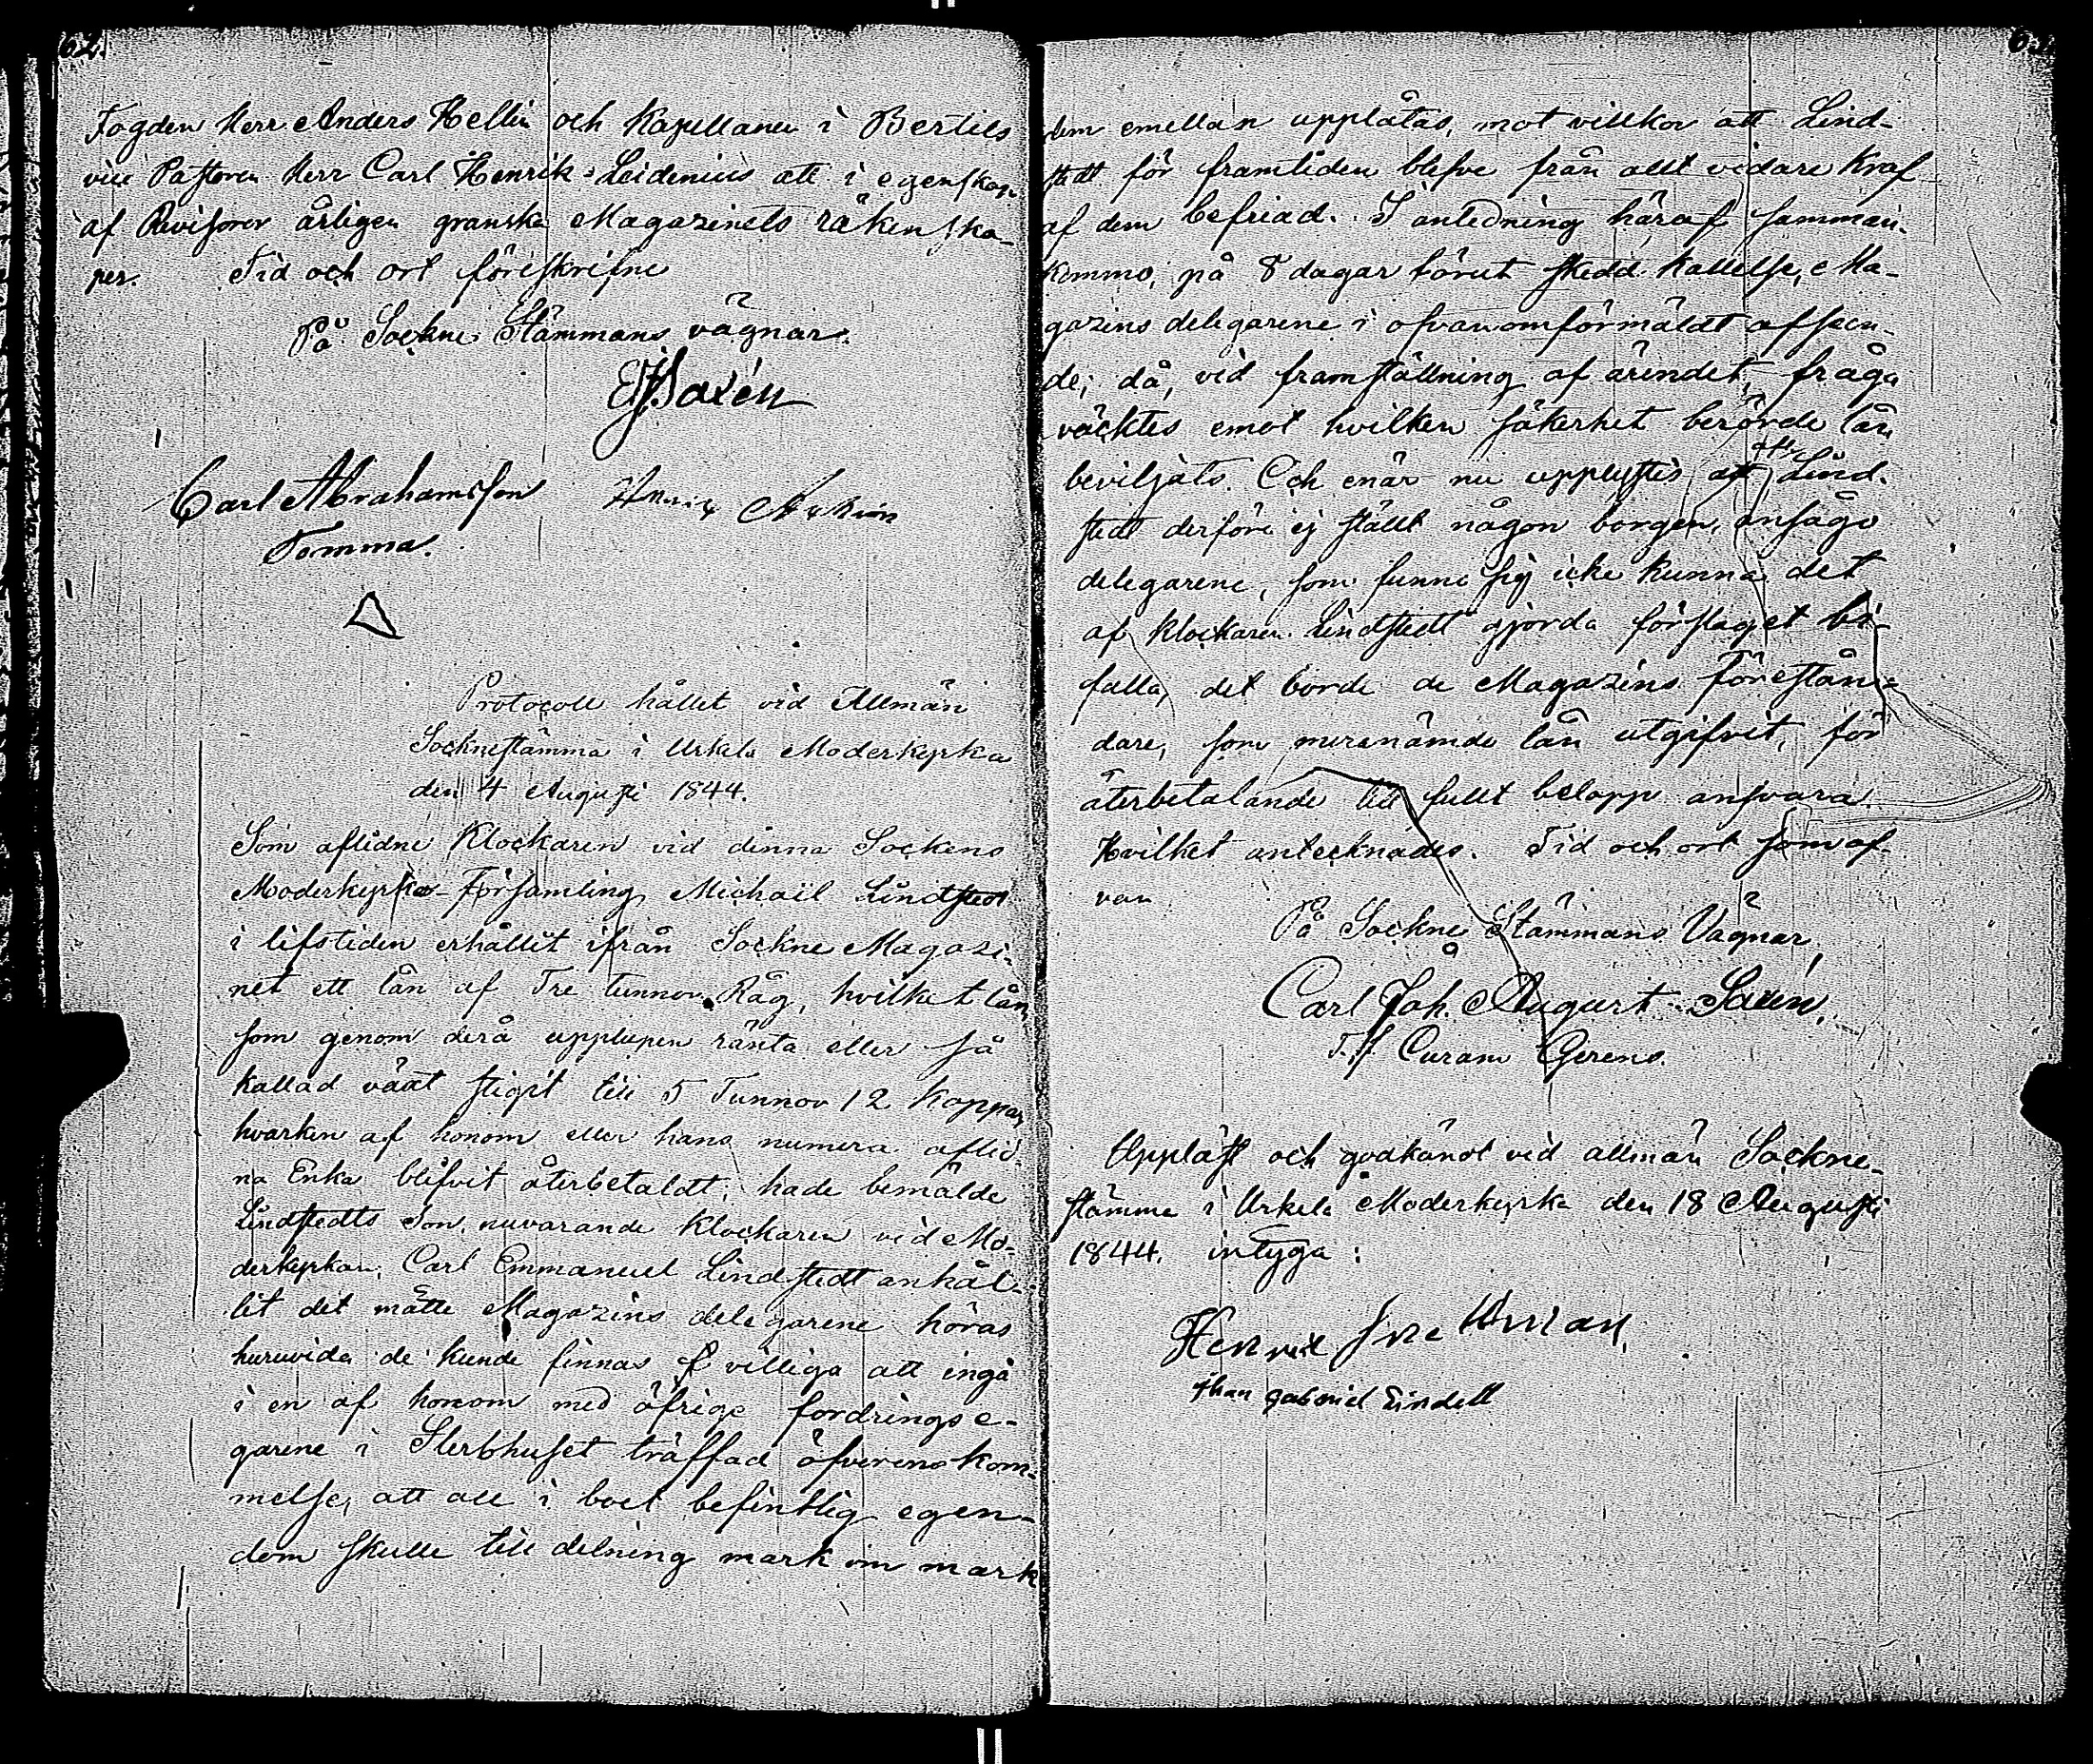 62.
Fogden Herr Anders Hellin och Kapellanen i Bertils
vice Pastoren Herr Carl Henrik Leidenius att i egenskap
af Revisorer årligen granska Magazinets räkenska-
per. Tid och ort föreskrifne
På Sockne Stämmans vägnar.
Saxén
Carl Abrahamsson
Tomma.
Protocoll hållet vid Allmän
Socknestämma i Urkela Moderkyrka
den 4 Augusti 1844.
Som aflidne Klockaren vid denna Sockens
Moderkyrko-Församling Michaël Lindstedt
i lifstiden erhållit ifrån Sockne Magazi-
net ett lån af Tre tunnor Råg, hvilket lån
som genom derå upplupen ränta eller så
kallad växt stigit till 5 Tunnor 12 Kappar
hvarken af honom eller hans numera aflid-
na Enka blifvit återbetaldt, hade bemälde
Lindstedts Son, nuvarande Klockaren vid Mo-
derkyrkan, Carl Emmanuel Lindstedt anhål-
lit det måtte Magazins delegarene höras
huruvida de kunde finnas villiga att ingå
i en af honom med öfrige fordringse-
garene i Sterbhuset träffad öfverenskom-
melse, att all i boet befintlig egen-
dom skulle till delning mark om mark
dem emellan upplåtas, mot villkor att Lind-
stedt för framtiden blefve från allt vidare kraf
af dem befriad. I anledning häraf samman-
kommo, på 8 dagar förut skedd kallelse, Ma-
gazins delegarene i ofvanomförmäldt afseen-
de; då, vid framställning af ärendet, fråga
väcktes emot hvilken säkerhet berörde lån
beviljats. Och enär nu upplystes att Lind-
stedt derföre ej ställt någon borgen, ansågo
delegarene, som funno sig icke kunna det
af Klockaren Lindstedt gjorda förslaget bi-
falla, det borde de Magazins Förestån-
dare, som meranämde lån utgifvit, för
återbetalande till fullt belopp ansvara.
Hvilket antecknades. Tid och ort som of-
van
På Sockne Stämmans Vägnar,
Carl Joh. August Saxén,
T.f. Curam Gerens.
Uppläst och godkändt vid allmän Sockne-
stämma i Urkela Moderkyrka den 18 Augusti
1844, intyga:
Henrik
Gabriel Lindell